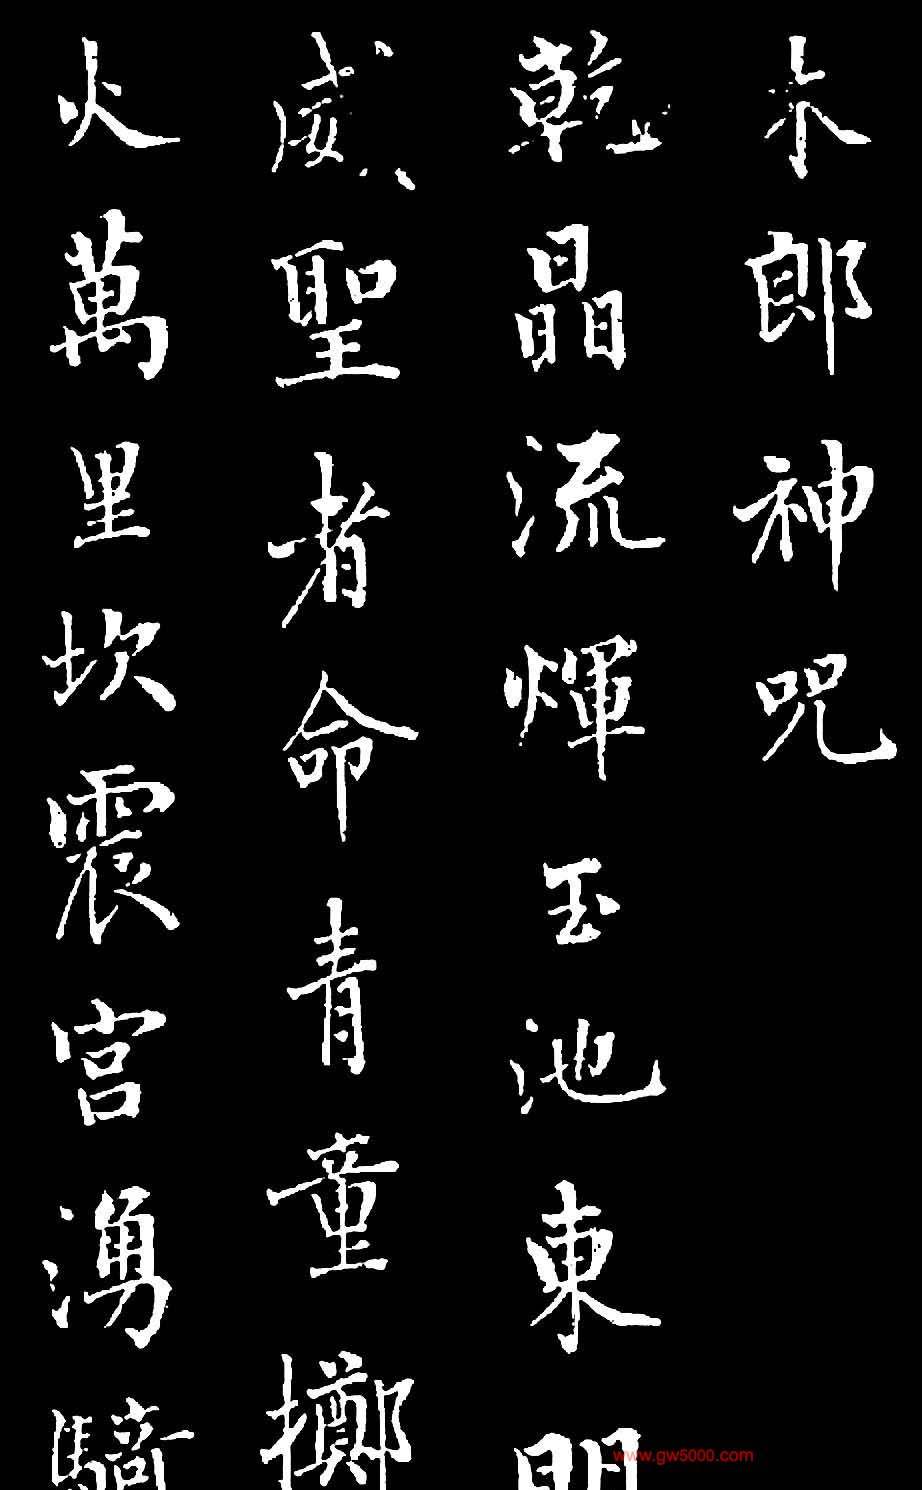 木郎神咒
乾晶流輝玉池東明
威聖者命青童擲
火萬里坎震宮湧騎
www.gw5000.com